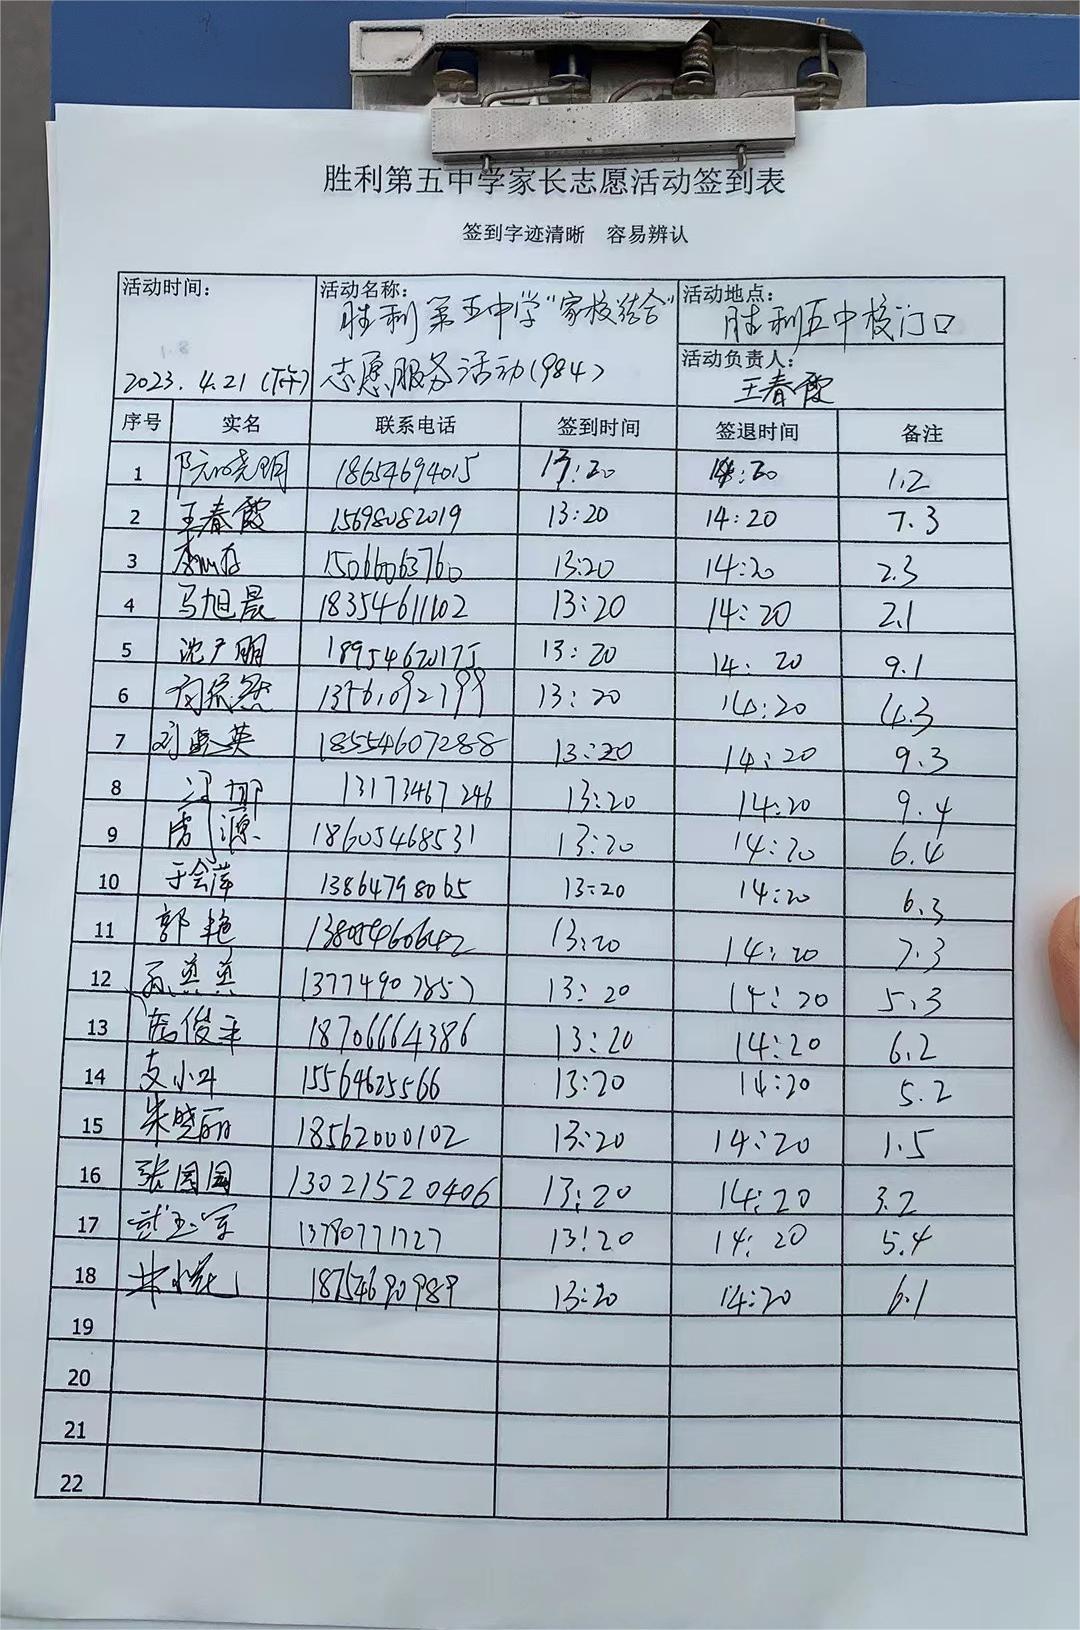 胜利第五中学家长志愿活动签到表
签到字迹清晰 容易辨认
活动时间: 活动名称: 活动地点:
胜利第五中学"家校结合" 胜利五中校门口
1.8 活动负责人:
2023.4.21(下午) 志愿服务活动(984) 王春霞
序号 实名 联系电话 签到时间 签退时间 备注
1 阮晓明 18654694015 13:20 14:20 1.2
2 王春霞 15698082019 13:20 14:20 7.3
3 15066063760 13:20 14:20 2.3
4 马旭晨 18354611102 13:20 14:20 2.1
5 沈广明 18954620175 13:20 14:20 9.1
6 13561092199 13:20 14:20 4.3
7 18554607288 13:20 14:20 9.3
8 13173467246 13:20 14:20 9.4
9 18605468531 13:20 14:20 6.4
10 于会萍 13864798065 13:20 14:20 6.3
11 郭艳 13805460642 13:20 14:20 7.3
12 孙真真 13774907857 13:20 14:20 5.3
13 18706664386 13:20 14:20 6.2
14 支小叶 15564625566 13:20 14:20 5.2
15 朱晓丽 18562000102 13:20 14:20 1.5
16 张園園 13021520406 13:20 14:20 3.2
17 武玉军 13780771727 13:20 14:20 5.4
18 18754690989 13:20 14:20 6.1
19
20
21
22